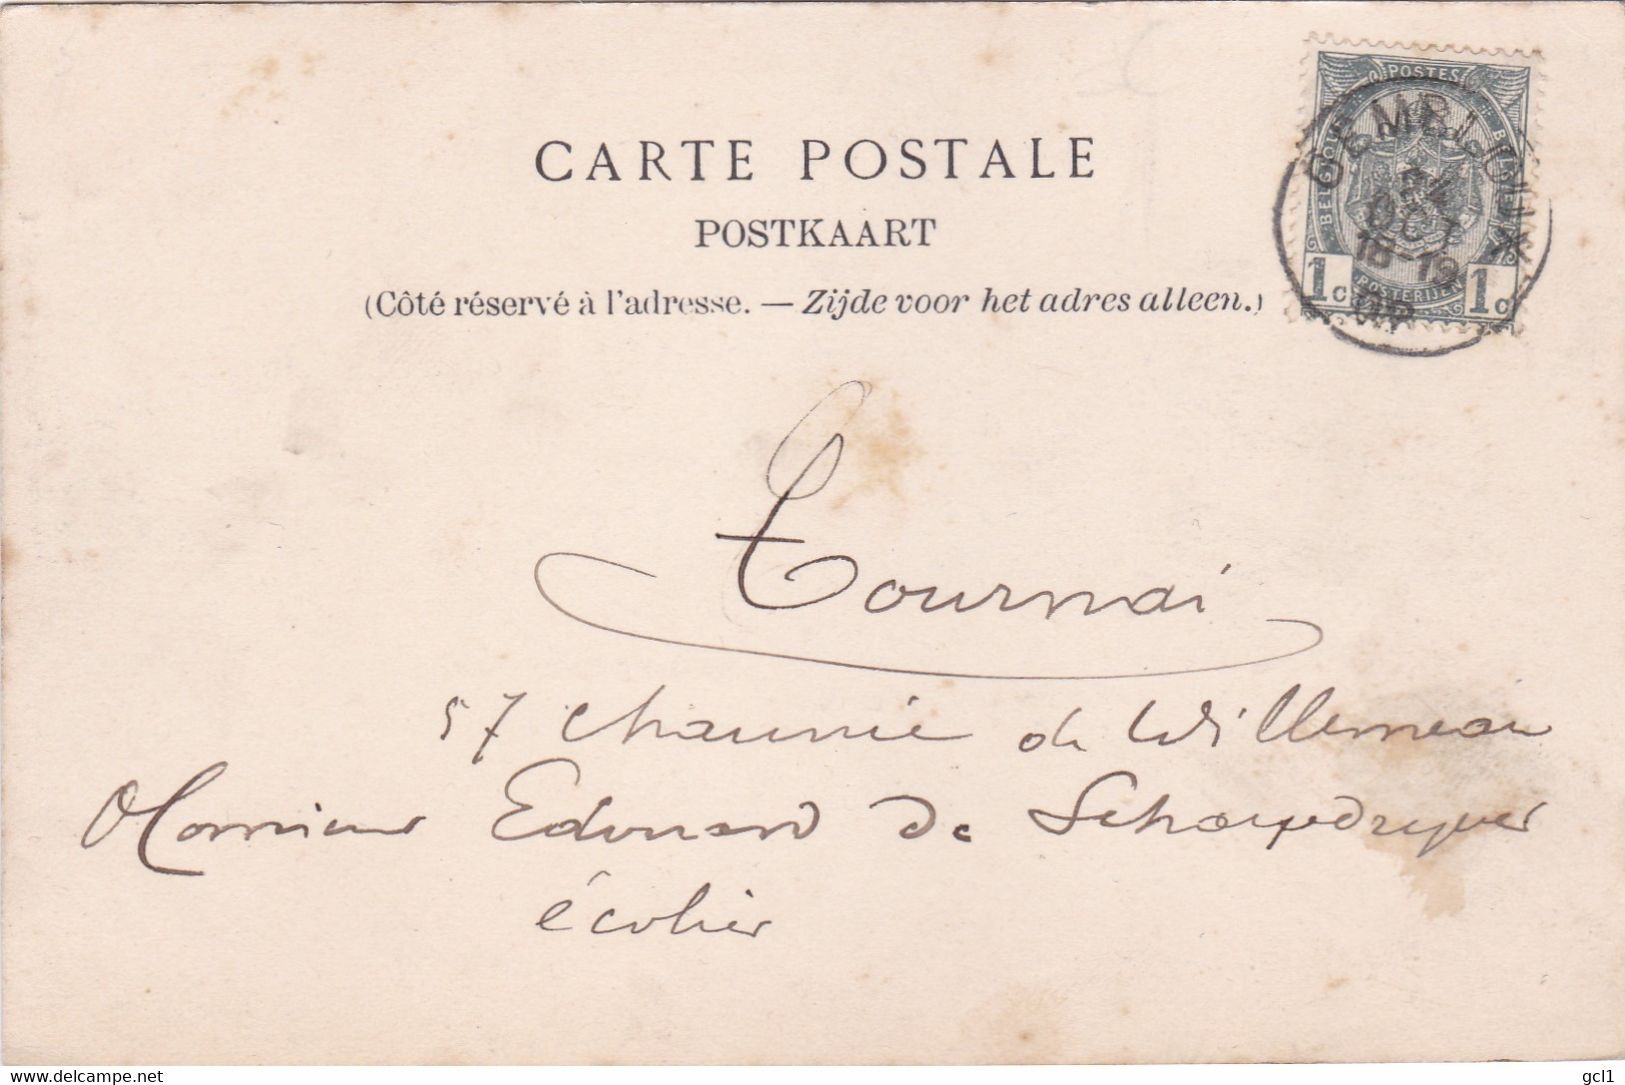 CARTE POSTALE
POSTKAART
(Côté réservé à l'adresse. — Zijde voor het adres alleen.)
POSTES
BELGIQUE
BELGIE
POSTERIJEN
1c 1c
GEMBLOUX
OCT
18-19
Tournai
57 chaussée de Willemeau
Monsieur Edouard De Schaepdryver
écolier
www.delcampe.net
gcl1